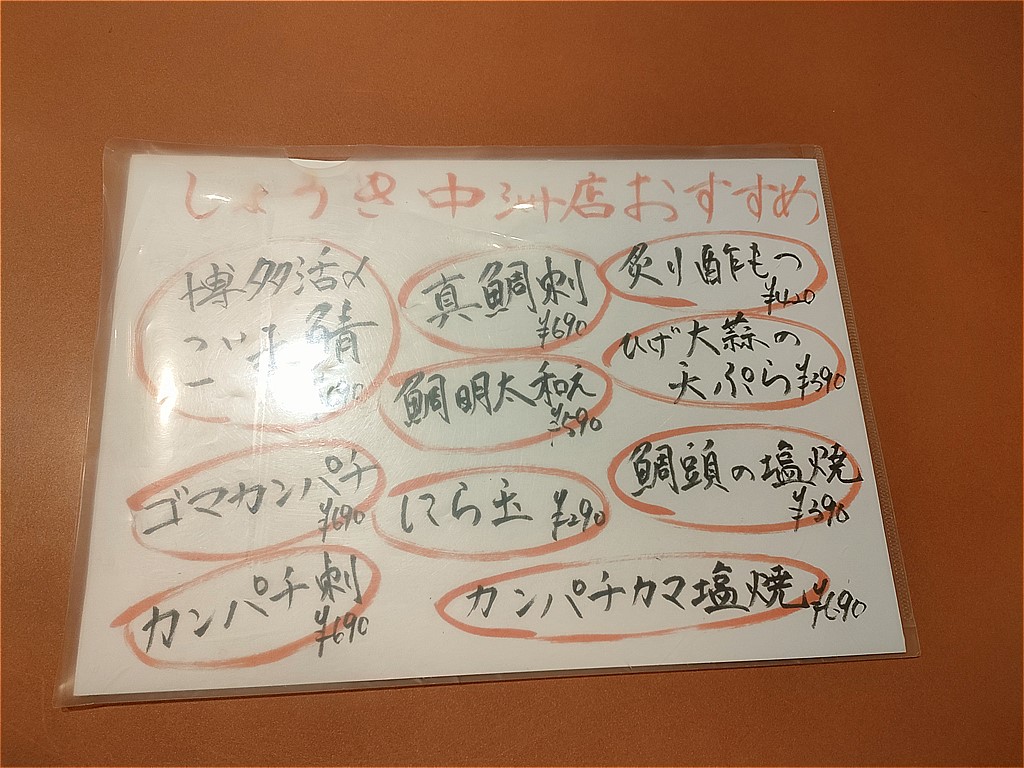 しょうき中洲店おすすめ
博多活〆
ごま鯖
真鯛刺
¥690
炙り酢もつ
¥420
ひげ大蒜の
天ぷら¥390
鯛明太和え
¥590
ゴマカンパチ
¥690
にら玉 ¥290
鯛頭の塩焼
¥390
カンパチ刺
¥690
カンパチカマ塩焼 ¥690